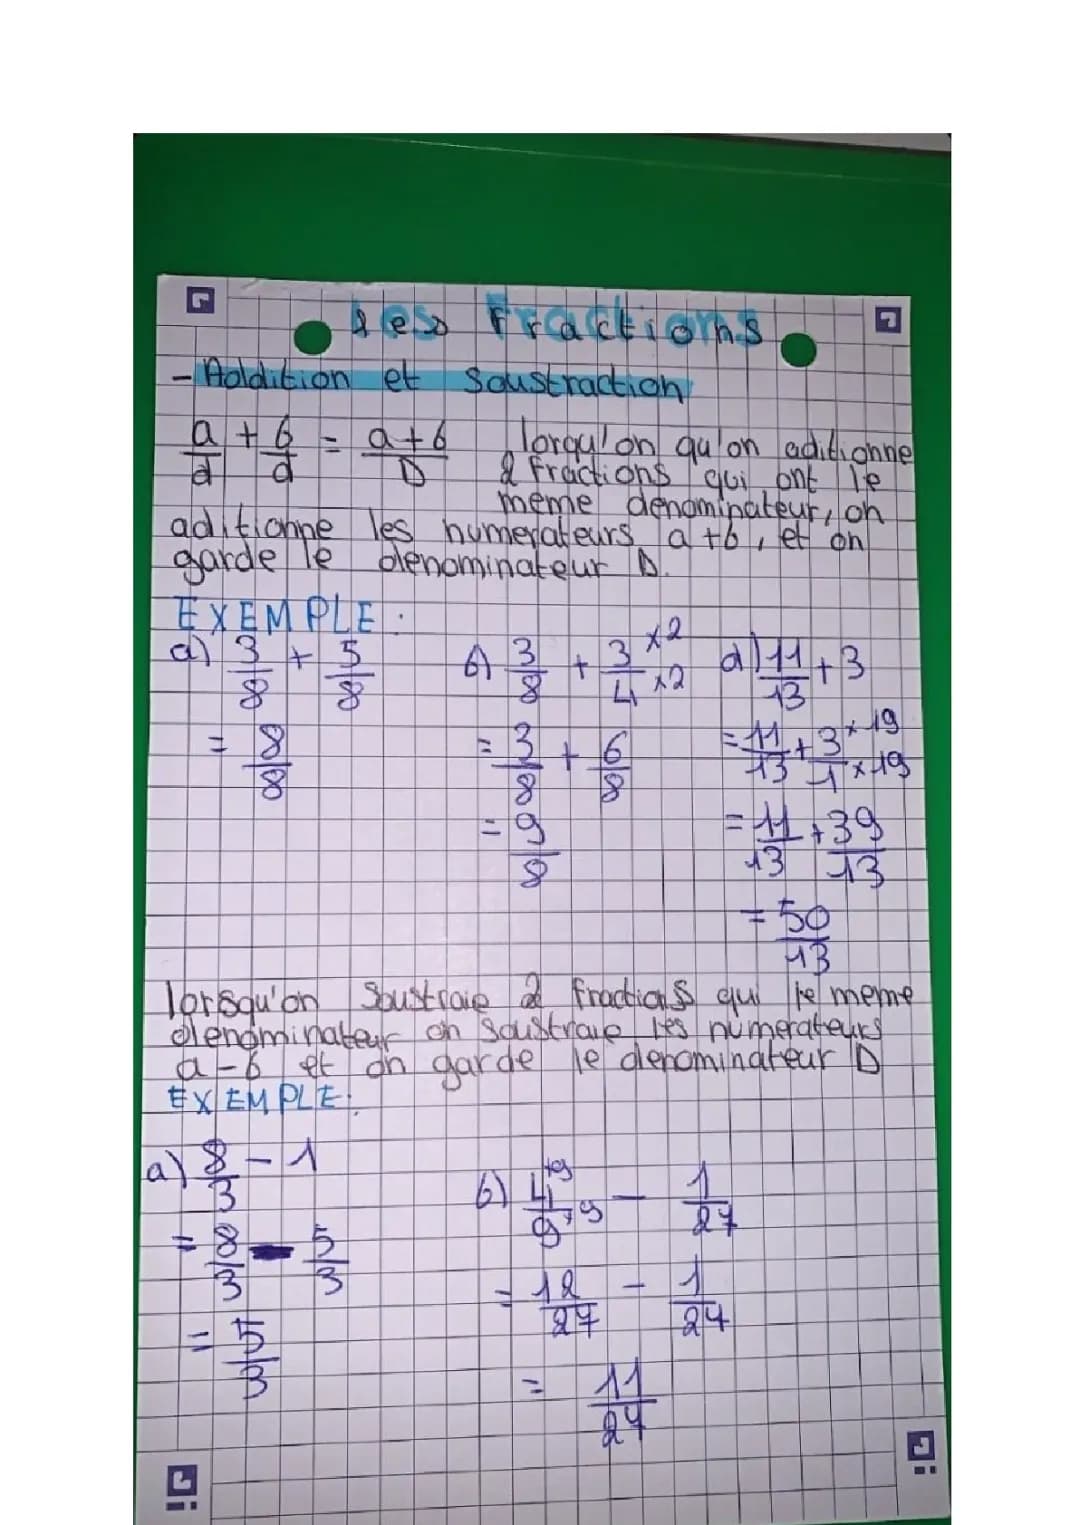 Les Fractions
- Addition et Soustraction
a/d + b/d = a+b/D lorqu'on qu'on aditionne
2 fractions qui ont le
meme denominateur, on
aditionne les numerateurs a+b, et on
garde le denominateur D.
EXEMPLE :
a) 3/8 + 5/8
= 8/8
b) 3/8 + 3/4 ×2 ×2
= 3/8 + 6/8
= 9/8
d) 11/13 + 3
= 11/13 + 3/1 ×19 ×19
= 11/13 + 39/13
= 50/13
lorsqu'on Soustraie 2 fractions qui le meme
denominateur on soustraie les numerateurs
a-b et on garde le denominateur D
EXEMPLE:
a) 8/3 - 1
= 8/3 - 5/3
= 5/3
b) 4/9 - 1/27
= 12/27 - 1/27
= 11/27